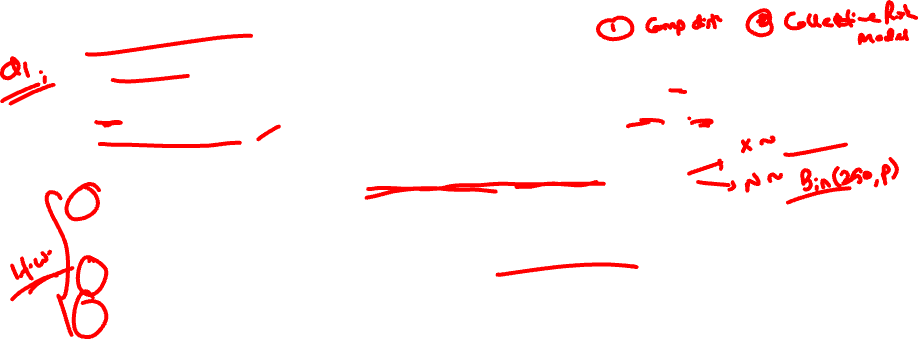 ① Comp dist ② Collective Risk
Model
Q1.
X ~
N ~ Bin(250, P)
H.W.